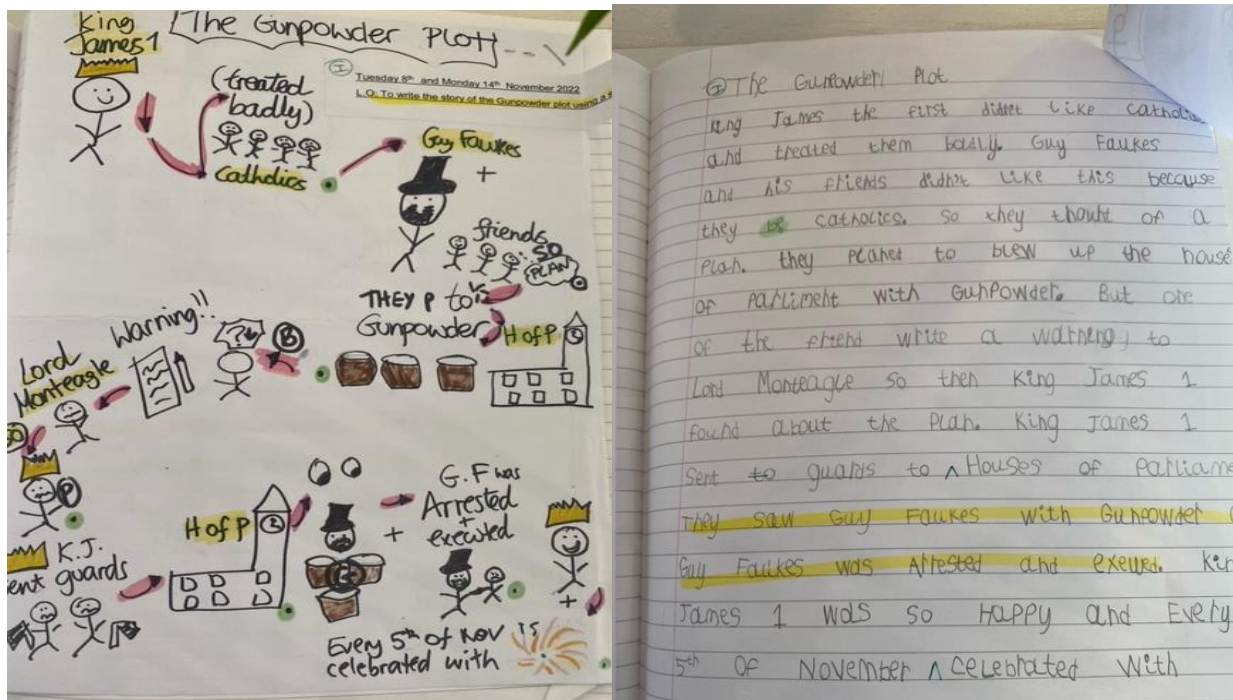 King
James 1
The Gunpowder Plot
(treated
badly)
Catholics
Tuesday 8th and Monday 14th November 2022
L.O: To write the story of the Gunpowder plot using a s
Guy Fawkes
+
friends
so
PLAN
THEY P to
Gunpowder
H of P
B
Warning!!
Lord
Monteagle
P
K.J.
ent guards
H of P
+
G.F was
Arrested
+
executed
+
Every 5th of Nov is
celebrated with
The Gunpowder Plot
King James the first didnt like catholi
and treated them badly. Guy Faukes
and his friends didn't like this because
they be catholics. So they thouht of a
Plan. they planed to blew up the house
of parliment with Gunpowder. But one
of the friend write a warning, to
Lord Monteagle so then King James 1
found about the Plan. King James 1
Sent to guards to ^ Houses of Parliame
They saw Guy Faukes with Gunpowder
Guy Faukes was Arrested and exewed. Kin
James 1 was so Happy and Every
5th Of November ^ celebrated with